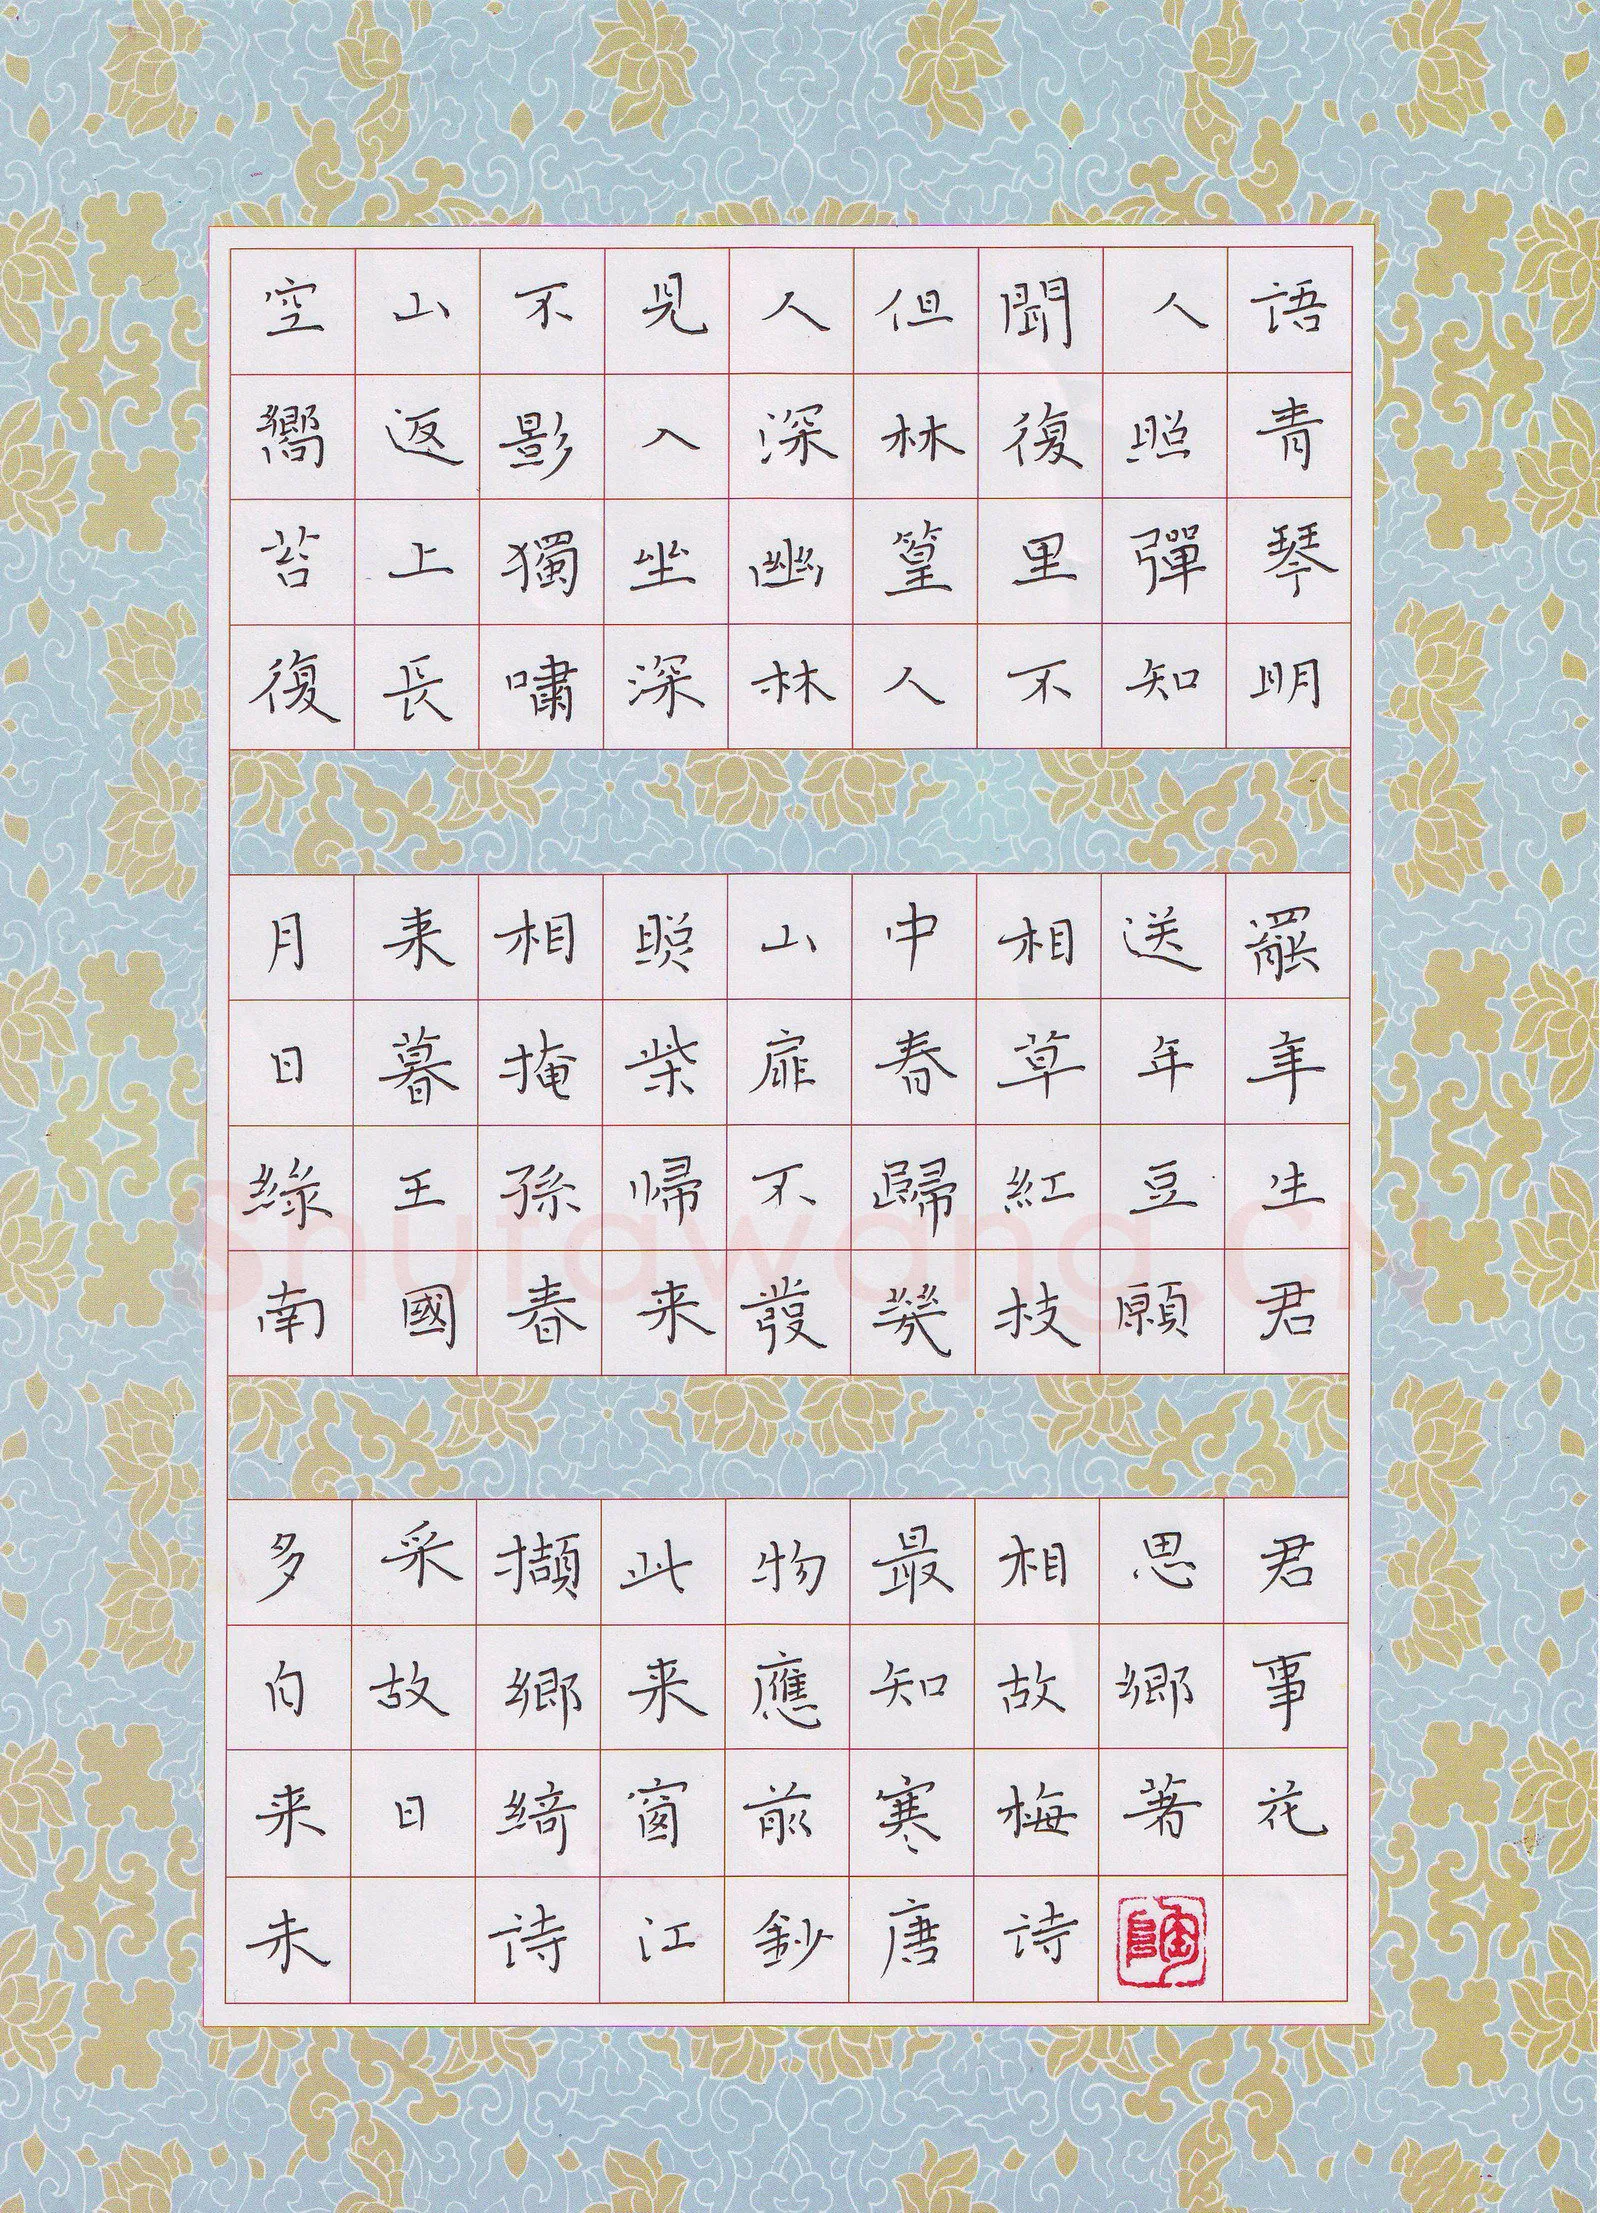 空山不見人但聞人語
嚮返影入深林復照青
苔上獨坐幽篁里彈琴
復長嘯深林人不知明
月来相照山中相送罷
日暮掩柴扉春草年年
綠王孫歸不歸紅豆生
南國春来發幾枝願君
多采擷此物最相思君
自故鄉来應知故鄉事
来日綺窗前寒梅著花
未 詩江鈔唐詩
陶
shufawang.cn